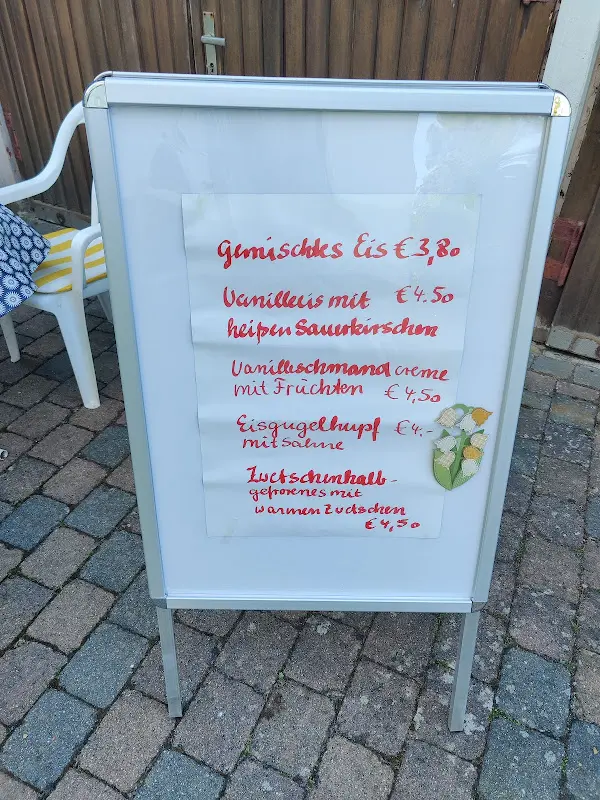 Gemischtes Eis € 3,80
Vanilleeis mit € 4.50
heißen Sauerkirschen
Vanilleschmand creme
mit Früchten € 4,50
Eisgugelhupf € 4.-
mit Sahne
Zwetschenhalb-
gefrorenes mit
warmen Zwetschen
€ 4,50